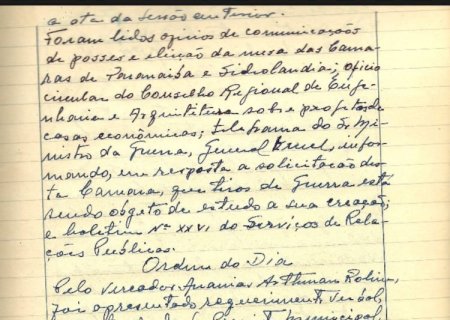 a ata da sessão anterior.
Foram lidos ofícios de comunicações
de posses e eleição da mesa das Cama-
ras de Paranaiba e Sidrolandia; oficio
circular do Conselho Regional de Enge-
nharia e Arquitetura sobre projetos de
casas econômicas; telegrama do Sr. Mi-
nistro da Guerra, General Kruel, infor-
mando, em resposta a solicitação des-
ta Camara, que tiros de Guerra está
sendo objeto de estudo a sua creação;
e boletim Nº XXVI do Serviços de Rela-
ções Publicas.
Ordem do Dia
Pelo Vereador Ananias
foi apresentado requerimento verbal
municipal